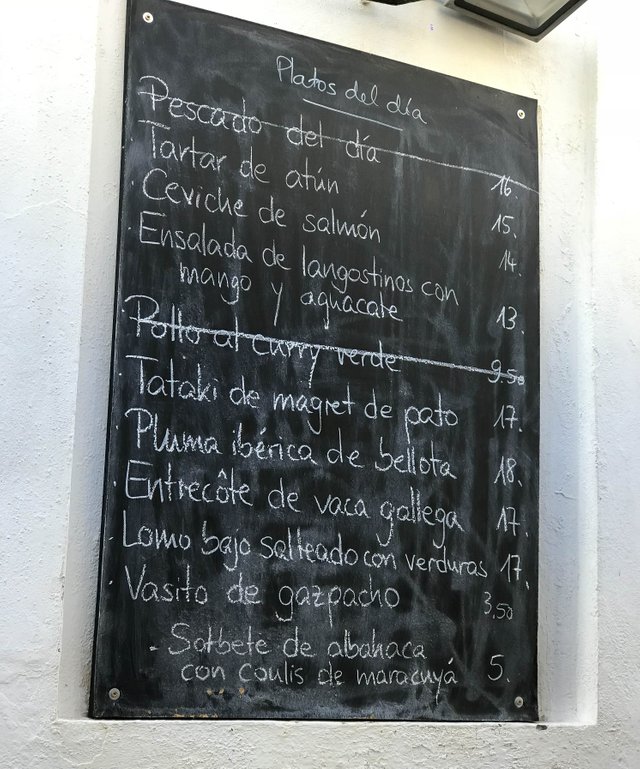 Platos del día
Pescado del día 16.
Tartar de atún 15.
Ceviche de salmón 14.
Ensalada de langostinos con
mango y aguacate 13.
Pollo al curry verde 9.50
Tataki de magret de pato 17.
Pluma ibérica de bellota 18.
Entrecôte de vaca gallega 17.
Lomo bajo salteado con verduras 17.
Vasito de gazpacho 3,50
- Sorbete de albahaca
con coulis de maracuyá 5.